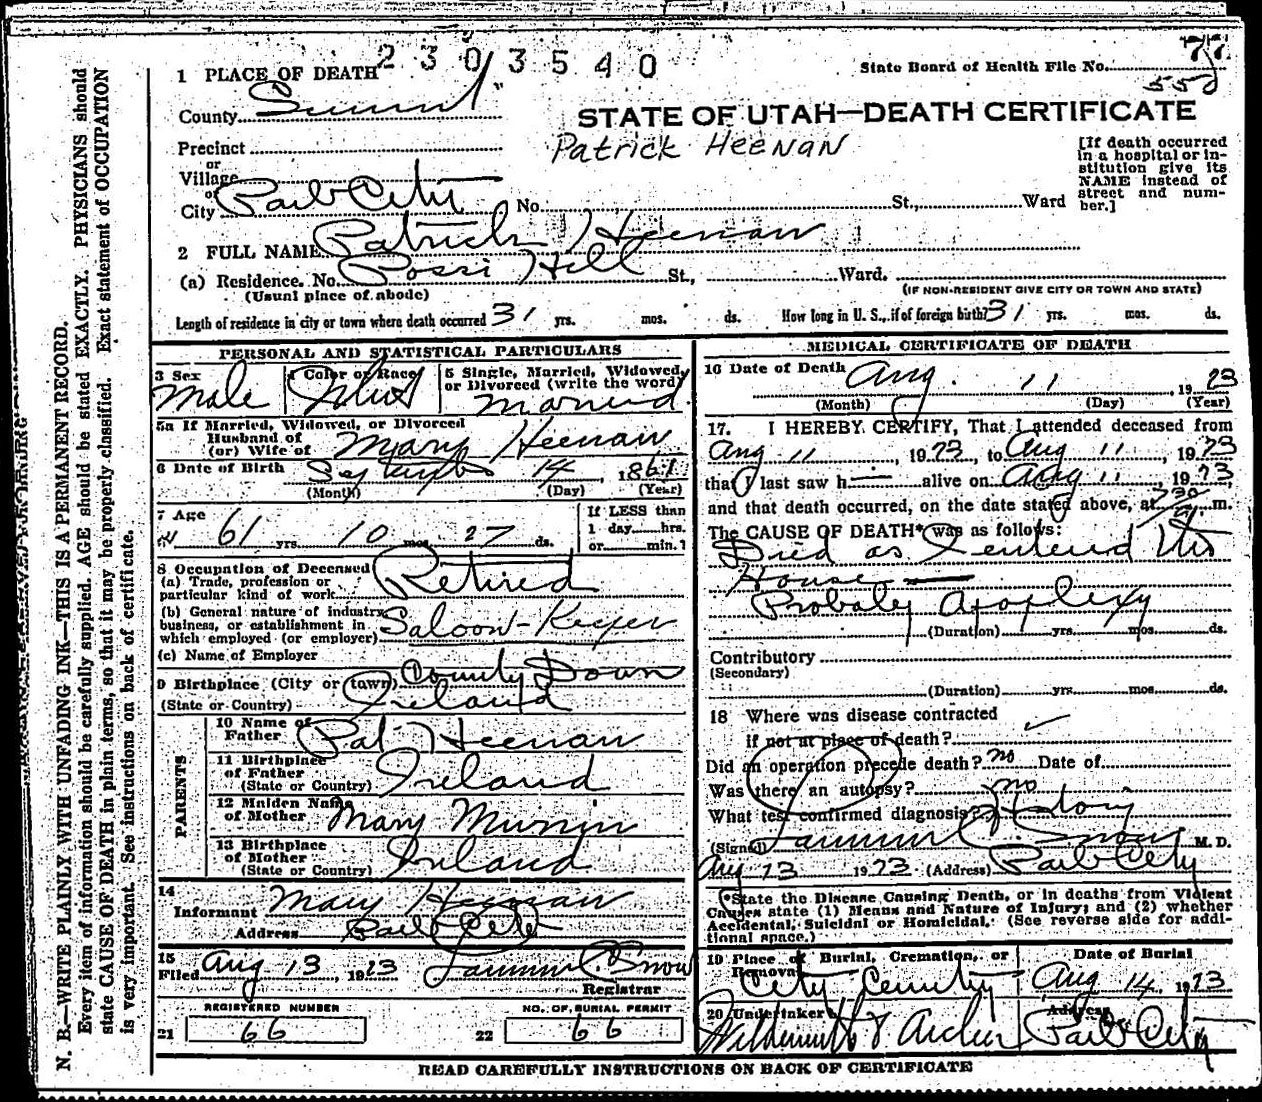 2303540
77
550
1 PLACE OF DEATH
State Board of Health File No.
County Summit
STATE OF UTAH—DEATH CERTIFICATE
Patrick HEENAN
Precinct
or
Village
or
City Park City No. St., Ward
[If death occurred
in a hospital or in-
stitution give its
NAME instead of
street and num-
ber.]
2 FULL NAME Patrick Heenan
(a) Residence. No. Rossi Hill St., Ward.
(Usual place of abode)
(IF NON-RESIDENT GIVE CITY OR TOWN AND STATE)
Length of residence in city or town where death occurred 31 yrs. mos. ds. How long in U. S., if of foreign birth? 31 yrs. mos. ds.
PERSONAL AND STATISTICAL PARTICULARS
3 Sex
Male
4 Color or Race
White
5 Single, Married, Widowed,
or Divorced (write the word)
Married
5a If Married, Widowed, or Divorced
Husband of
(or) Wife of Mary Heenan
6 Date of Birth September 14 1861
(Month) (Day) (Year)
7 Age
61 yrs. 10 mos. 27 ds.
If LESS than
1 day hrs.
or min.?
8 Occupation of Deceased
(a) Trade, profession or
particular kind of work Retired
(b) General nature of industry,
business, or establishment in
which employed (or employer) Saloon-Keeper
(c) Name of Employer
9 Birthplace (City or town) County Down
(State or Country) Ireland
PARENTS
10 Name of
Father Pat Heenan
11 Birthplace
of Father
(State or Country) Ireland
12 Maiden Name
of Mother Mary
13 Birthplace
of Mother
(State or Country) Ireland
14
Informant Mary Heenan
Address Park City
15
Filed Aug 13, 1923
Snow
Registrar
REGISTERED NUMBER
21 66
NO. OF BURIAL PERMIT
22 66
MEDICAL CERTIFICATE OF DEATH
16 Date of Death Aug. 11, 1923
(Month) (Day) (Year)
17. I HEREBY CERTIFY, That I attended deceased from
Aug 11, 1923, to Aug 11, 1923
that I last saw h alive on Aug 11, 1923,
and that death occurred, on the date stated above, at 7 30 m.
The CAUSE OF DEATH* was as follows:
Died as I entered the
House
Probaly Apoplexy
(Duration) yrs. mos. ds.
Contributory
(Secondary)
(Duration) yrs. mos. ds.
18 Where was disease contracted
if not at place of death?
Did an operation precede death? no Date of
Was there an autopsy? no
What test confirmed diagnosis? History
(Signed) Snow M. D.
Aug 13 1923 (Address) Park City
*State the Disease Causing Death, or in deaths from Violent
Causes state (1) Means and Nature of Injury; and (2) whether
Accidental, Suicidal or Homicidal. (See reverse side for addi-
tional space.)
19 Place of Burial, Cremation, or
Removal
City Cemetery
Date of Burial
Aug 14, 1923
20 Undertaker
Archer
Address
Park City
READ CAREFULLY INSTRUCTIONS ON BACK OF CERTIFICATE
N. B.—WRITE PLAINLY WITH UNFADING INK—THIS IS A PERMANENT RECORD.
Every item of information should be carefully supplied. AGE should be stated EXACTLY. PHYSICIANS should
state CAUSE OF DEATH in plain terms, so that it may be properly classified. Exact statement of OCCUPATION
is very important. See instructions on back of certificate.